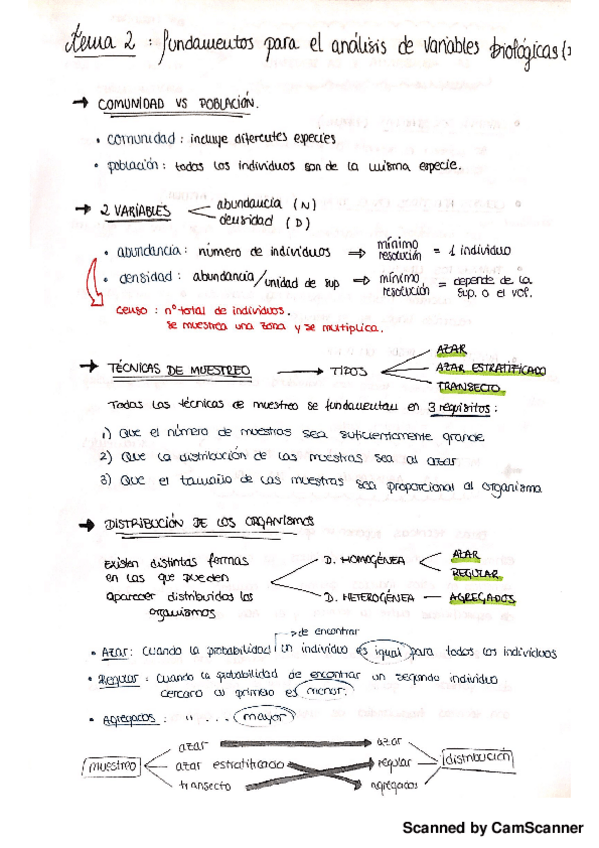 tema 2 : fundamentos para el análisis de variables biológicas
→ COMUNIDAD VS POBLACIÓN.
• comunidad : incluye diferentes especies
• población : todos los individuos son de la misma especie.
→ 2 VARIABLES
abundancia (N)
densidad (D)
• abundancia : número de individuos ⇒ mínimo resolución = 1 individuo
• densidad : abundancia/unidad de sup ⇒ mínimo resolución = depende de la sup. o el vol.
censo : nº total de individuos.
se muestrea una zona y se multiplica.
→ TÉCNICAS DE MUESTREO → TIPOS
AZAR
AZAR ESTRATIFICADO
TRANSECTO
Todas las técnicas de muestreo se fundamentan en 3 requisitos :
1) Que el número de muestras sea suficientemente grande
2) Que la distribución de las muestras sea al azar
3) Que el tamaño de las muestras sea proporcional al organismo
→ DISTRIBUCIÓN DE LOS ORGANISMOS
Existen distintas formas
en las que pueden
aparecer distribuidos los
organismos
D. HOMOGÉNEA
AZAR
REGULAR
D. HETEROGÉNEA — AGREGADOS
→ de encontrar
• Azar : cuando la probabilidad un individuo es igual para todos los individuos
• Regular : cuando la probabilidad de encontrar un segundo individuo
cercano al primero es menor.
• Agregados : " ... mayor
muestreo
azar
azar estratificado
transecto
azar
regular
agregados
distribución
Scanned by CamScanner